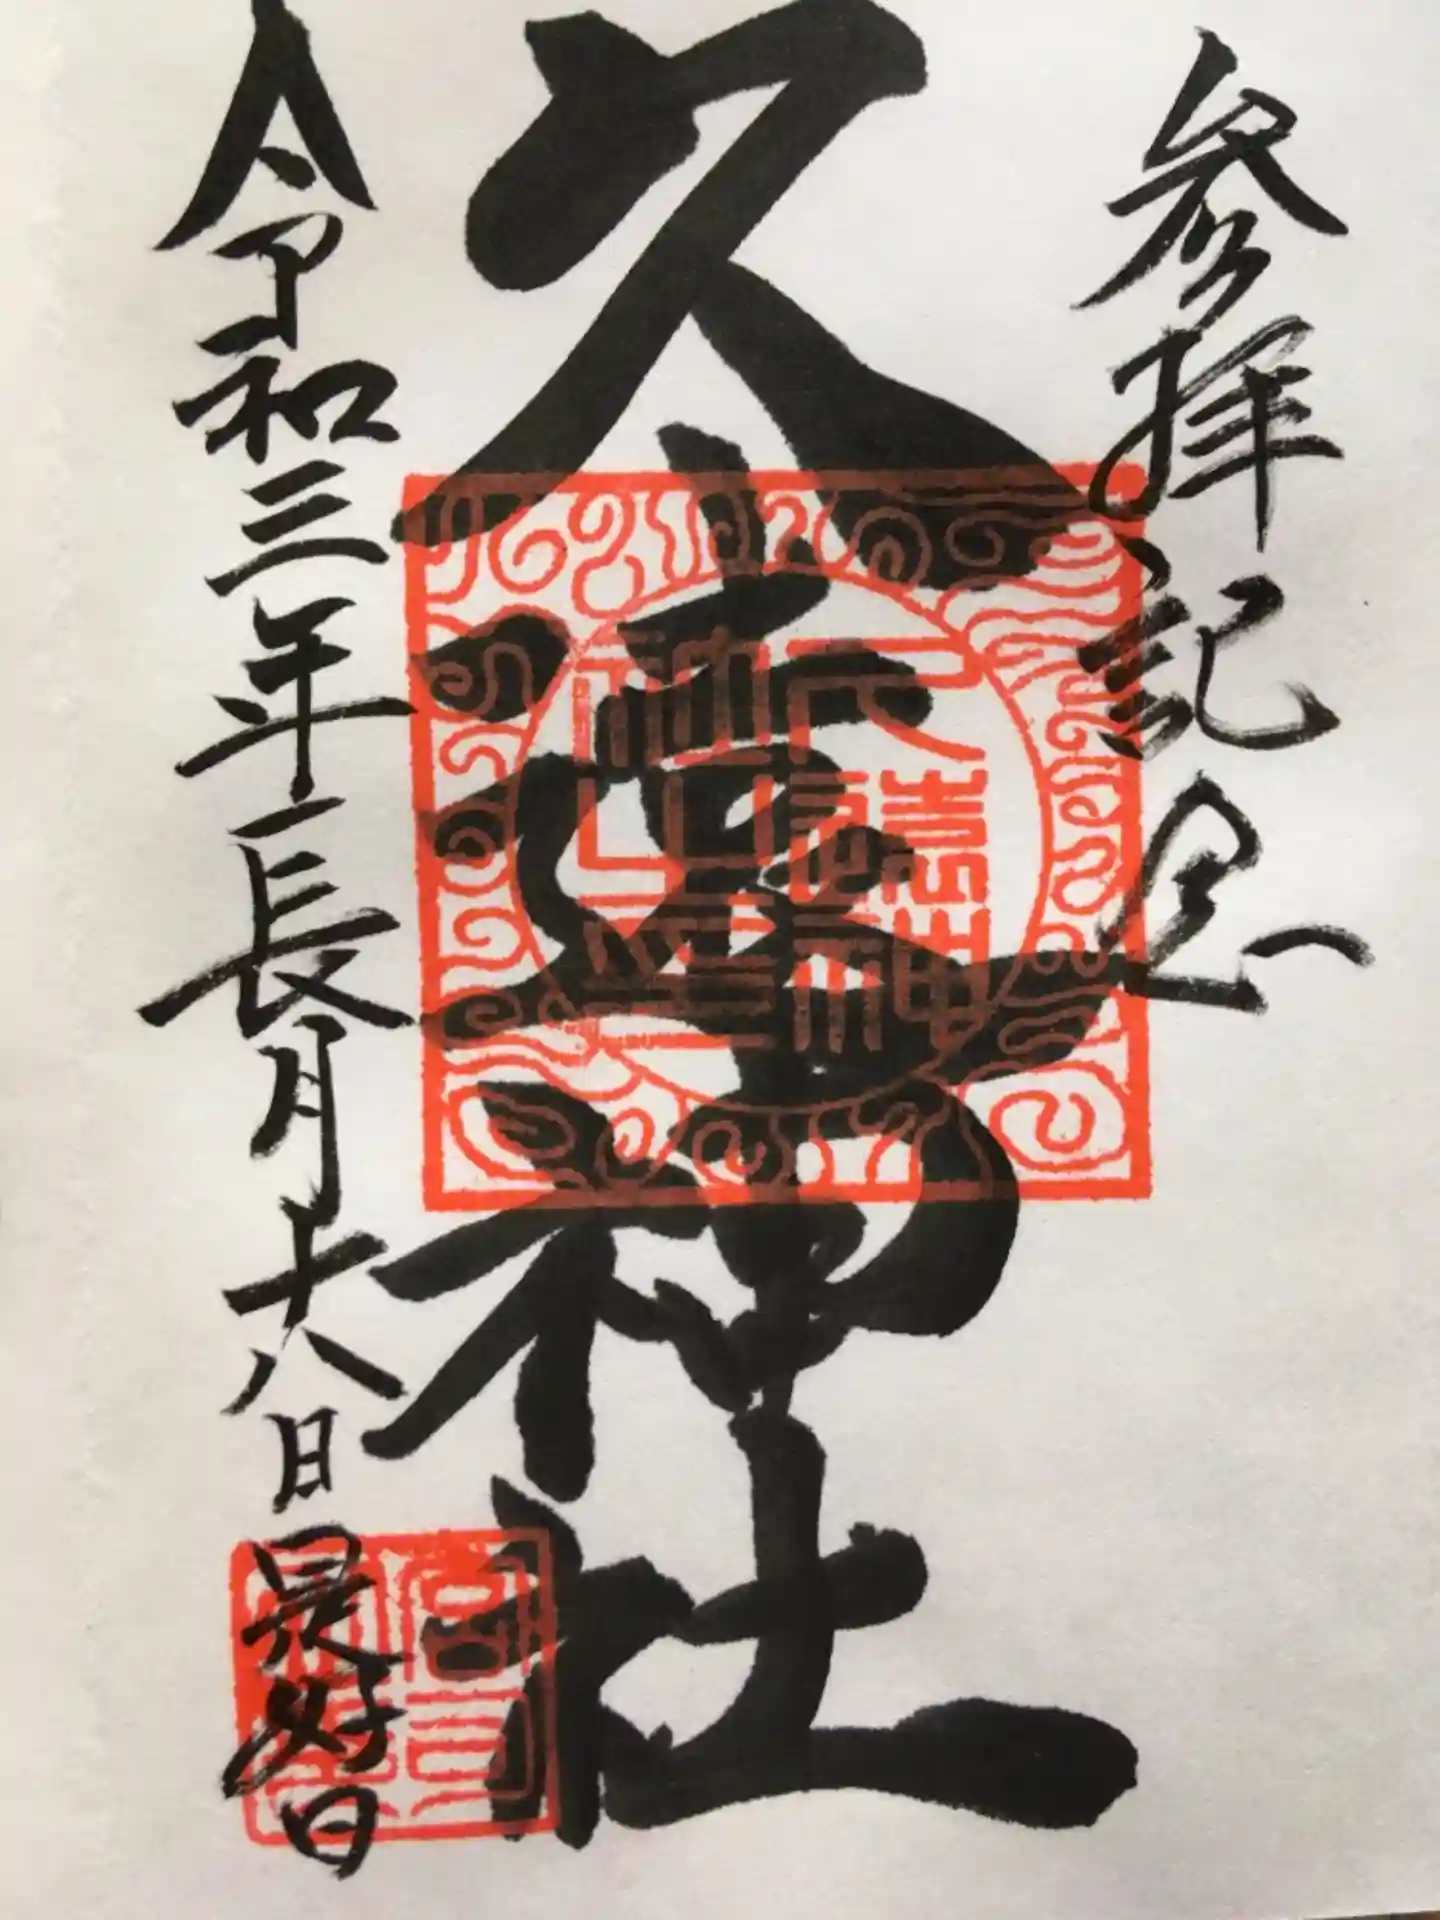 参拝記念
久遠神社
令和三年長月十八日 最好日